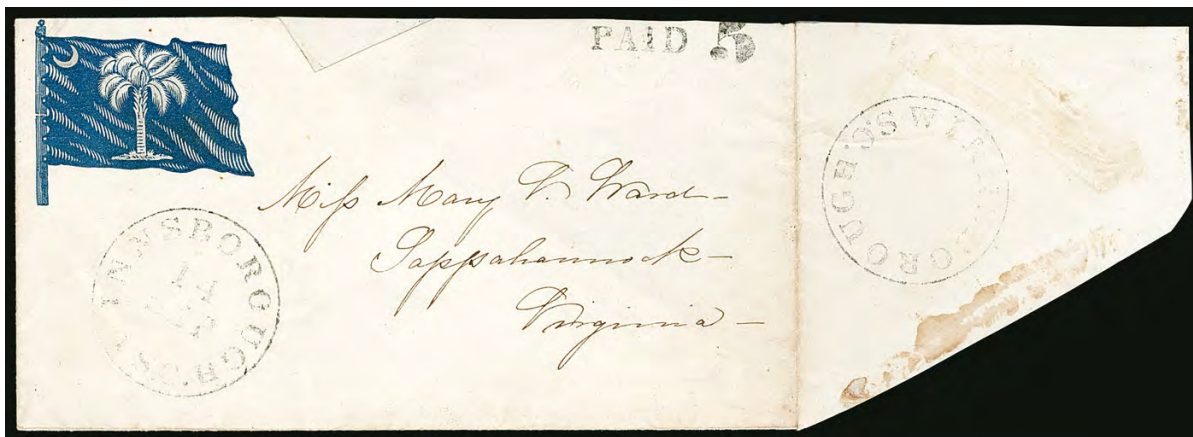 PAID 5
Miss Mary V. Ward
Tappahannock
Virginia
INNSBOROUGH.
OROUGH.